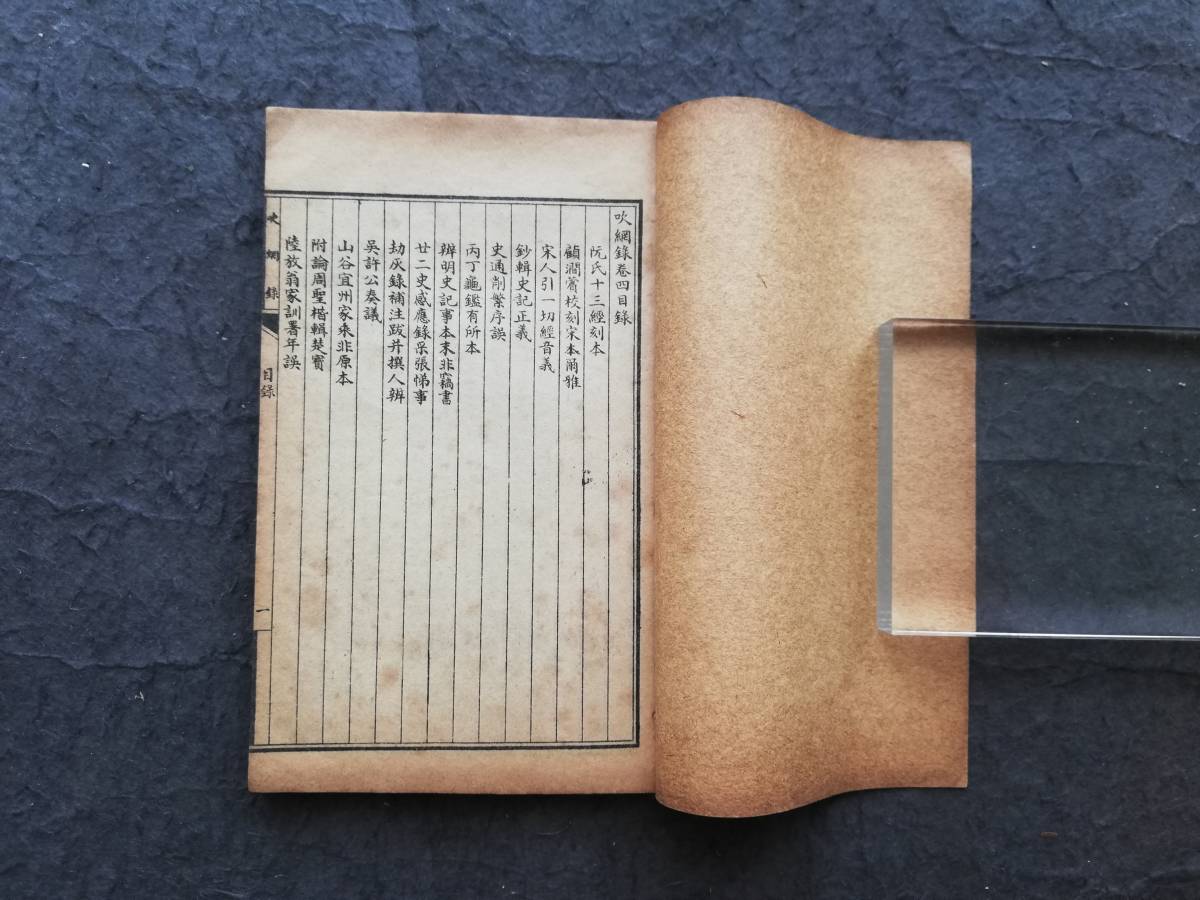 吹網錄卷四目錄
阮氏十三經刻本
顧澗薲校刻宋本爾雅
宋人引一切經音義
鈔輯史記正義
史通削繁序誤
丙丁龜鑑有所本
辨明史記事本末非竊書
廿二史感應錄采張悌事
劫灰錄補注跋并撰人辨
吳許公奏議
山谷宜州家乘非原本
附論周聖楷輯楚寶
陸放翁家訓署年誤
吹網錄
目錄
一